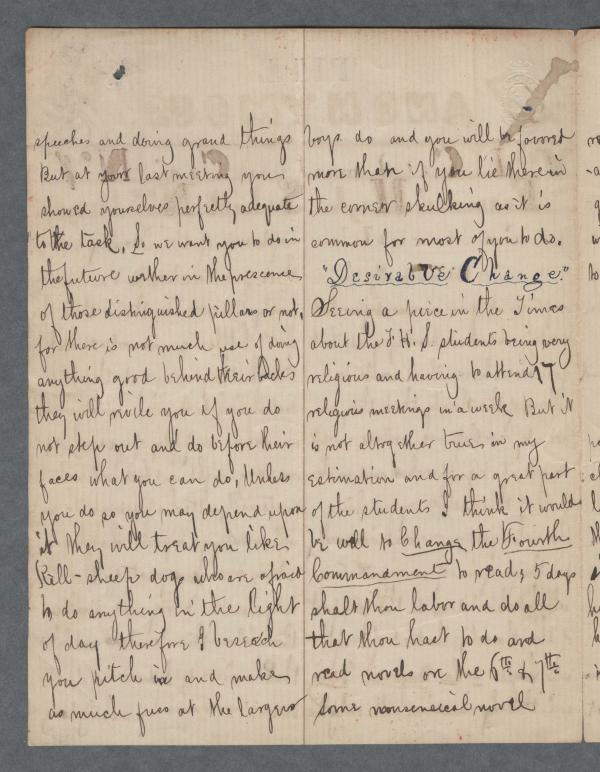 speeches and doing grand things
But at your last meeting you
showed yourselves perfectly adequate
to the task. So we want you to do in
the future wether in the prescence
of those distinguished pillars or not,
for there is not much use of doing
anything good behind their backs
they will revile you if you do
not step out and do before their
faces what you can do, Unless
you do so you may depend upon
it they will treat you like
Kill-sheep dogs who are afraid
to do anything in the light
of day therefore I beseech
you pitch in and make
as much fuss at the larger
boys do and you will be favored
more than if you lie there in
the corner skulking as it is
common for most of you to do.
"Desirable Change."
Seeing a piece in the Times
about the F. H. S. students being very
religious and having to attend 17
religious meetings in a week But it
is not altogether true in my
estimation and for a great part
of the students I think it would
be well to Change the Fourth
Commandment to read; 5 days
shalt thou labor and do all
that thou hast to do and
read novels on the 6th & 7th.
Some nonsensical novel